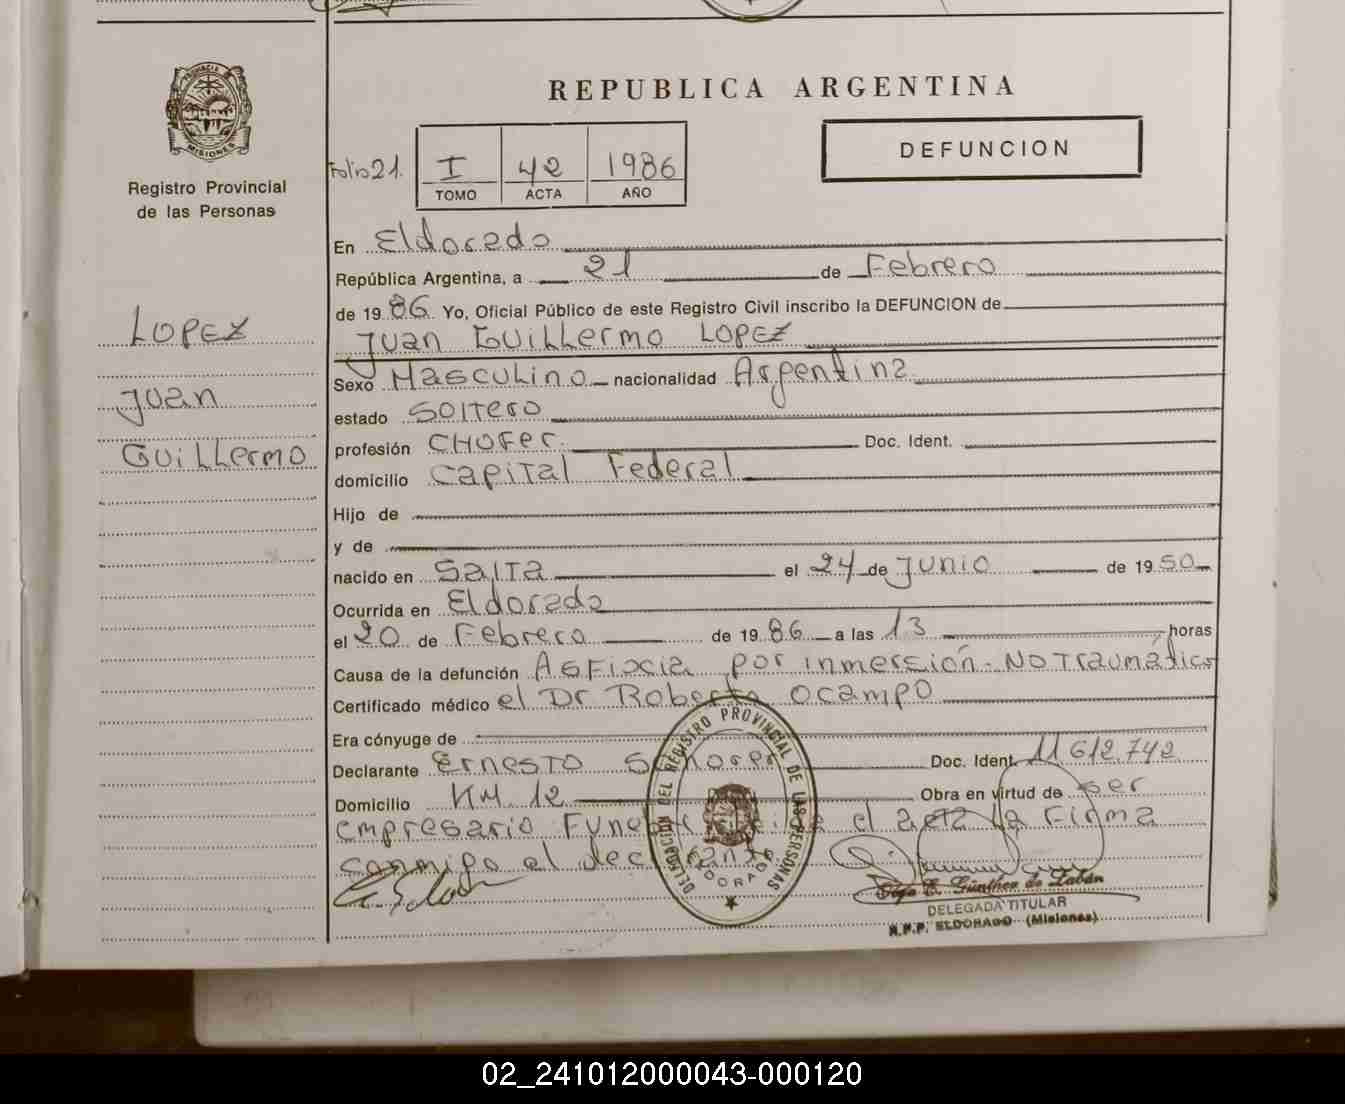 PROVINCIA DE
MISIONES
Registro Provincial
de las Personas
LOPEZ
Juan
Guillermo
REPUBLICA ARGENTINA
Folio 21.
I 42 1986
TOMO ACTA AÑO
DEFUNCION
En Eldorado
República Argentina, a 21 de Febrero
de 1986 Yo, Oficial Público de este Registro Civil inscribo la DEFUNCION de
Juan Guillermo LOPEZ
Sexo Masculino nacionalidad Argentina
estado Soltero
profesión CHOFER. Doc. Ident.
domicilio Capital Federal
Hijo de
y de
nacido en Salta el 24 de Junio de 1950
Ocurrida en Eldorado
el 20 de Febrero de 1986 a las 13 horas
Causa de la defunción Asfixia por inmersión - No Traumático
Certificado médico el Dr Roberto Ocampo
Era cónyuge de
Declarante Ernesto Doc. Ident. 11.612.742
Domicilio KM. 12 Obra en virtud de ser
empresario el acta la Firma
conmigo el declarante
DELEGACION DEL REGISTRO PROVINCIAL DE LAS PERSONAS
ELDORADO
Olga E. Günther de Zabán
DELEGADA TITULAR
R.P.P. ELDORADO (Misiones)
02_241012000043-000120